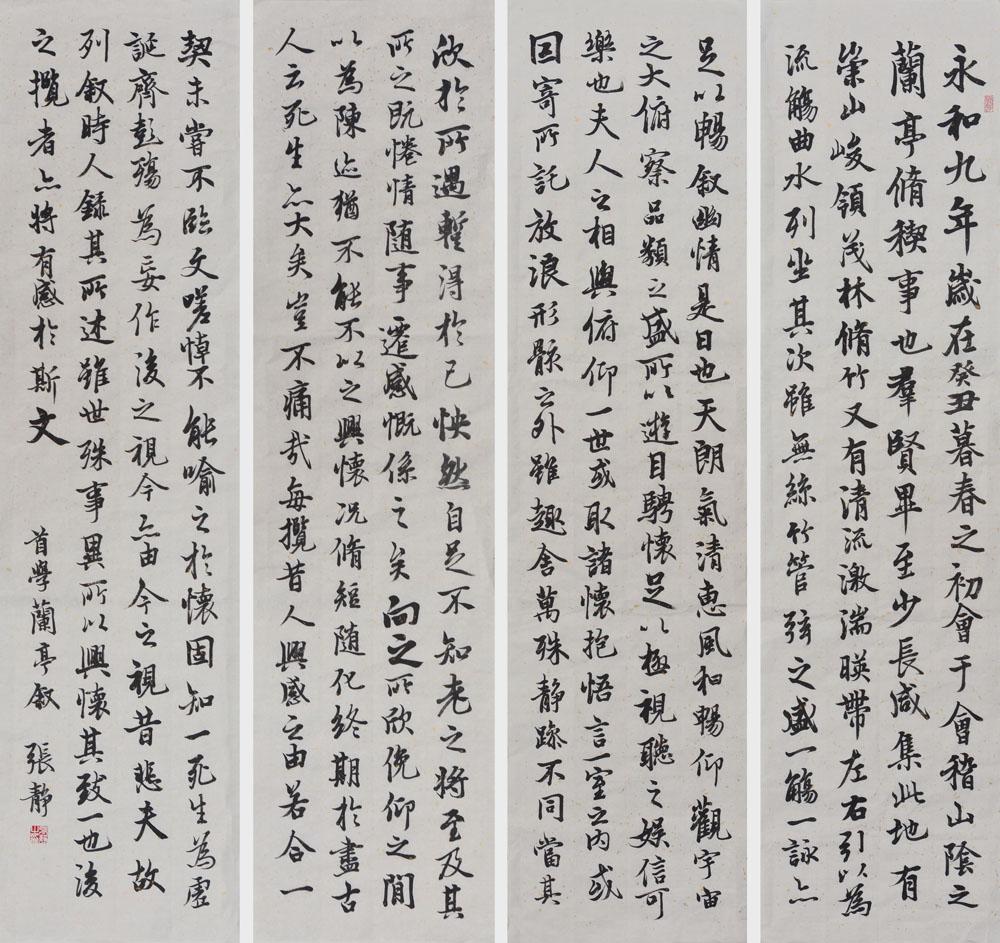 永和九年歲在癸丑暮春之初會于會稽山陰之
蘭亭脩稧事也羣賢畢至少長咸集此地有
崇山峻領茂林脩竹又有清流激湍暎帶左右引以為
流觴曲水列坐其次雖無絲竹管弦之盛一觴一詠亦
足以暢叙幽情是日也天朗氣清惠風和暢仰觀宇宙
之大俯察品類之盛所以遊目騁懷足以極視聽之娱信可
樂也夫人之相與俯仰一世或取諸懷抱悟言一室之内或
因寄所託放浪形骸之外雖趣舍萬殊静躁不同當其
欣於所遇暫得於己怏然自足不知老之將至及其
所之既惓情随事遷感慨係之矣向之所欣俛仰之閒
以為陳迹猶不能不以之興懷況脩短随化終期於盡古
人云死生亦大矣豈不痛哉每攬昔人興感之由若合一
契未嘗不臨文嗟悼不能喻之於懷固知一死生為虛
誕齊彭殤為妄作後之視今亦由今之視昔悲夫故
列叙時人録其所述雖世殊事異所以興懷其致一也後
之攬者亦將有感於斯文
首學蘭亭叙 張静